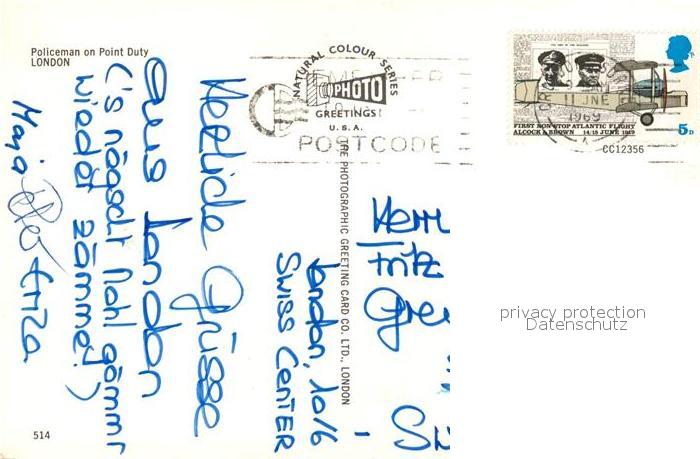 Policeman on Point Duty
LONDON
NATURAL COLOUR SERIES
PHOTO
GREETINGS
U.S.A.
REMEMBER
POSTCODE
11 JNE
1969
FIRST NON-STOP ATLANTIC FLIGHT
ALCOCK & BROWN 14/15 JUNE 1919
5D
CC12356
THE PHOTOGRAPHIC GREETING CARD CO. LTD., LONDON
London, 10/6
Swiss Center
Herzliche Grüsse
aus London
(s nägscht Mahl gömmr
wieder zämme!)
Herrn
Fritz
Gre
privacy protection
Datenschutz
514